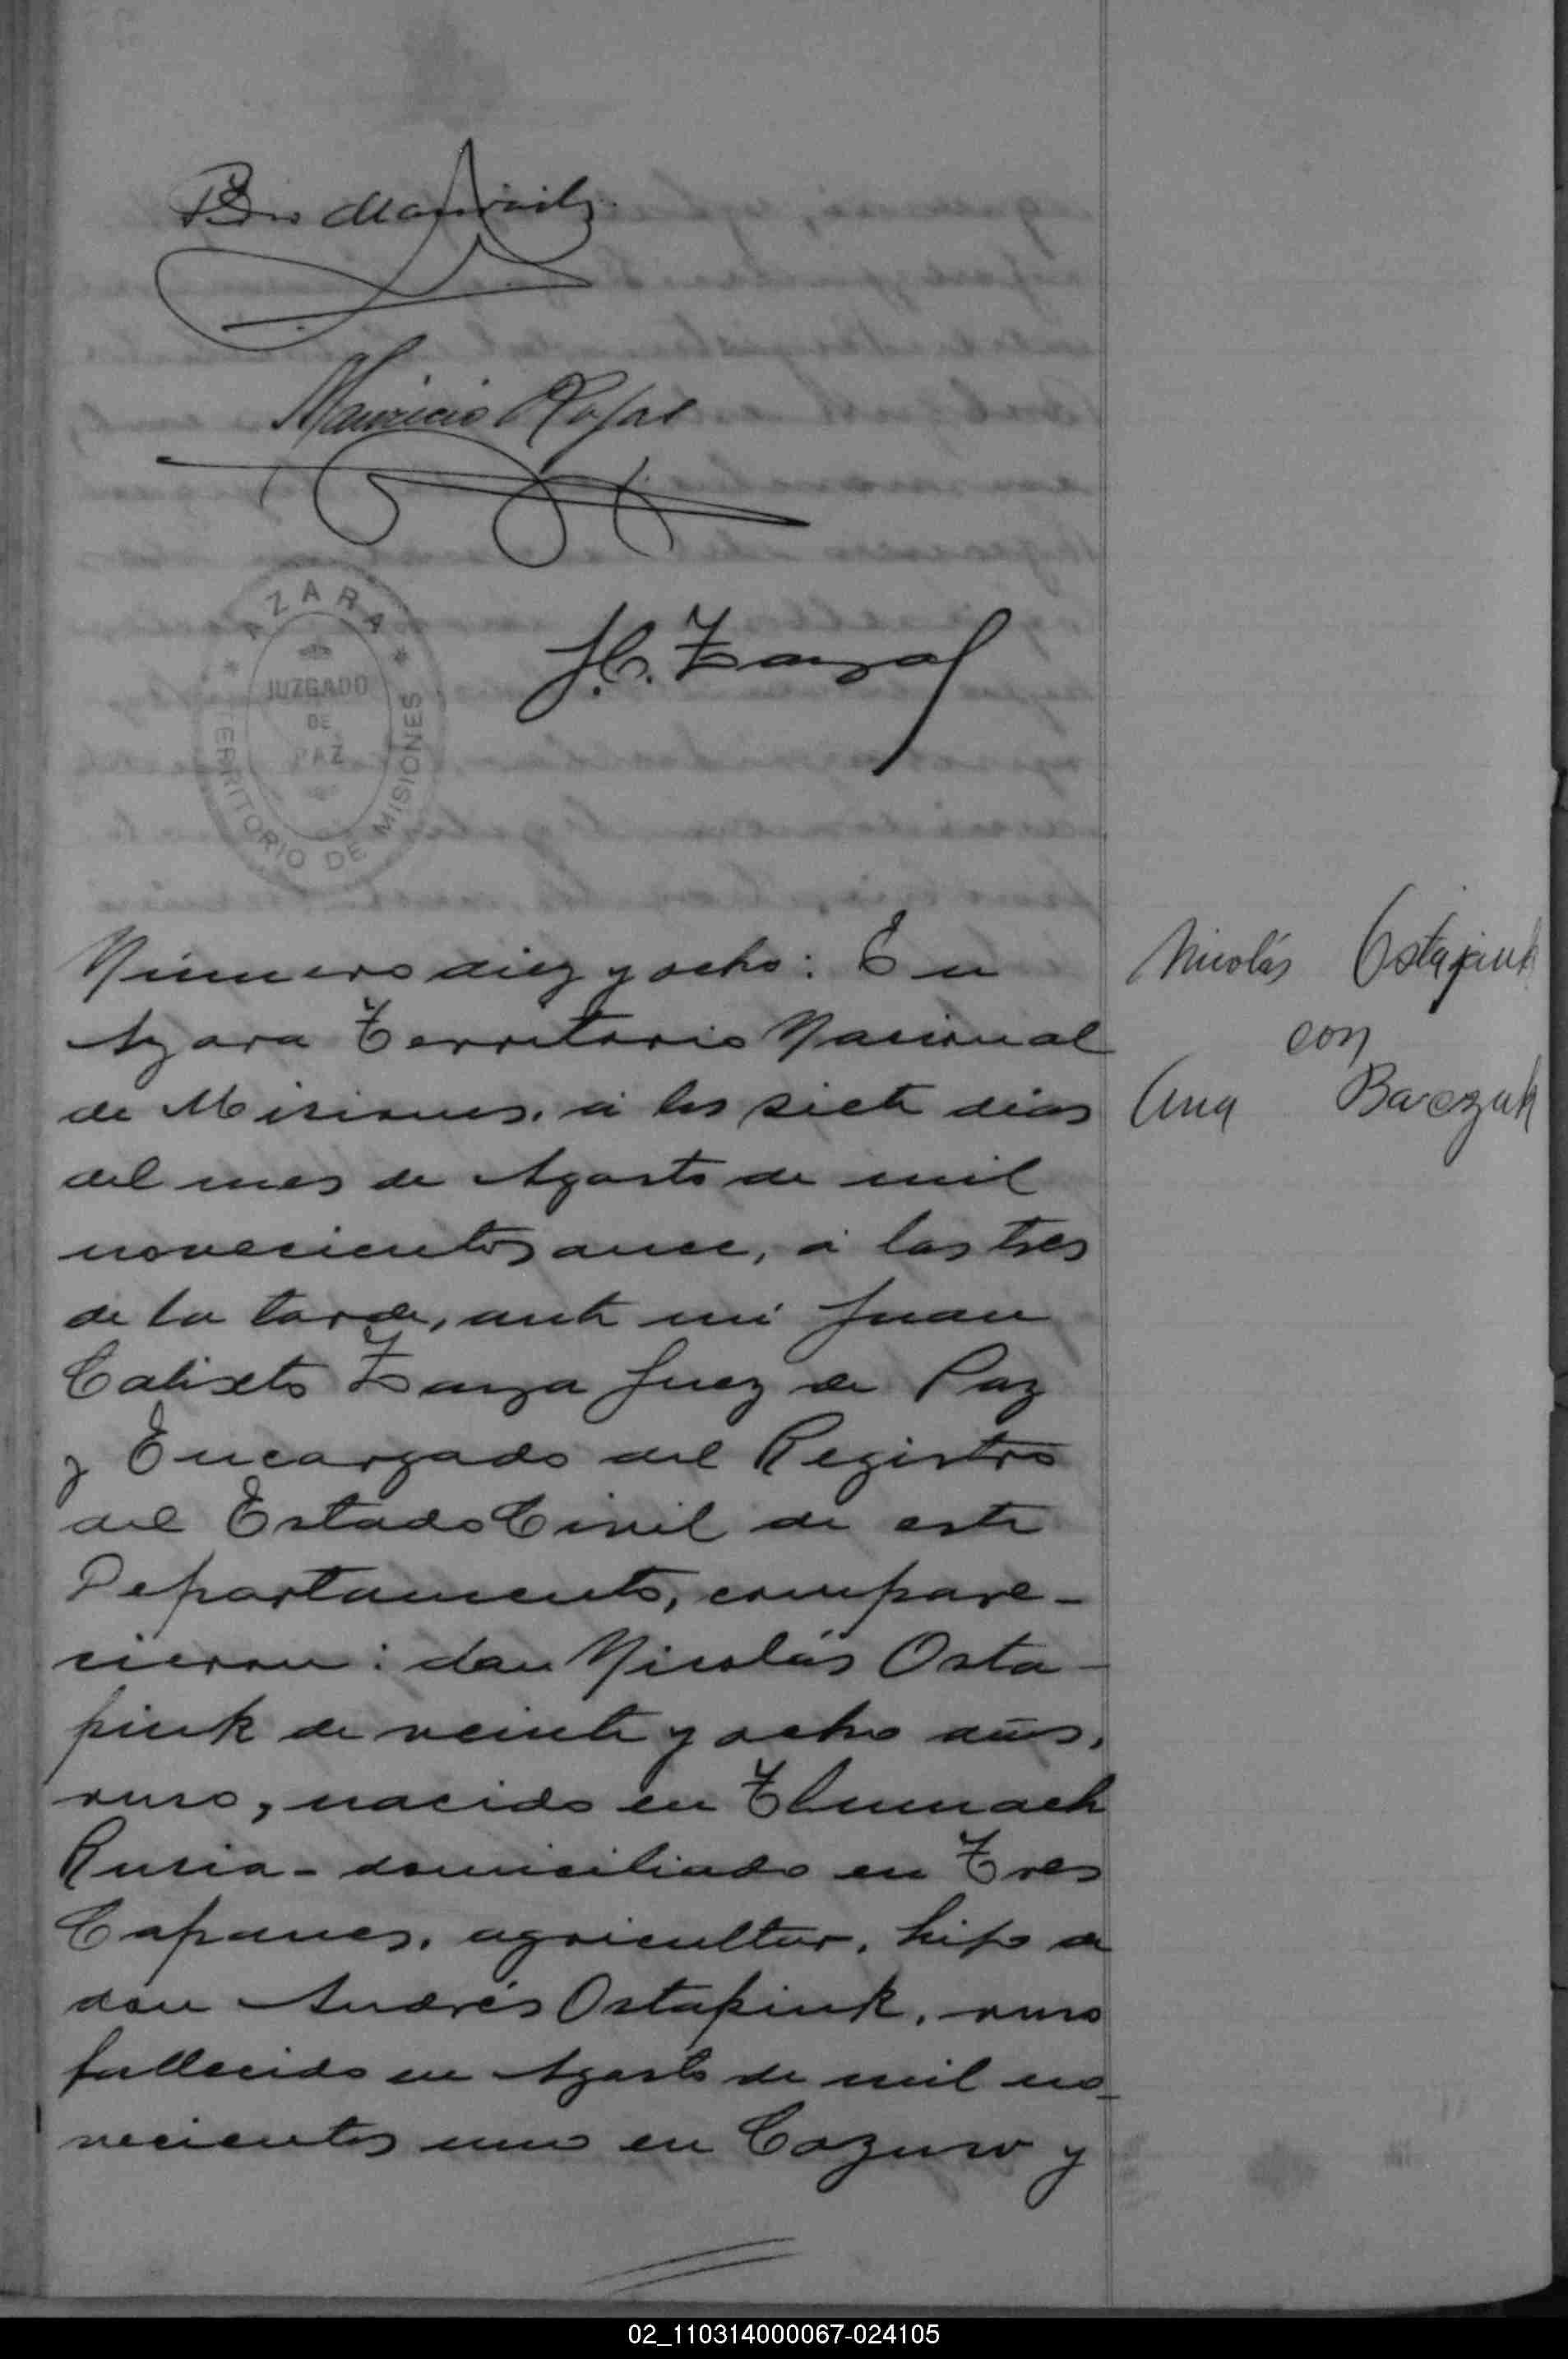 Mauricio Rojas
AZARA
JUZGADO
DE
PAZ
TERRITORIO DE MISIONES
J.C. Zanza
Número diez y ocho: En
Azara Territorio Nacional
de Misiones, á los siete dias
del mes de Agosto de mil
novecientos once, á las tres
de la tarde, ante mi Juan
Calixto Zanza Juez de Paz
y Encargado del Registro
del Estado Civil de este
Departamento, compare-
cieron: don Nicolás Osta-
piuk de veinte y ocho años,
ruso, nacido en Tlumach
Rusia - domiciliado en Tres
Capones, agricultor, hijo de
don Andrés Ostapiuk, ruso
fallecido en Agosto de mil no-
vecientos uno en y
Nicolás Ostapiuk
con
Ana Barczuk
02_110314000067-024105